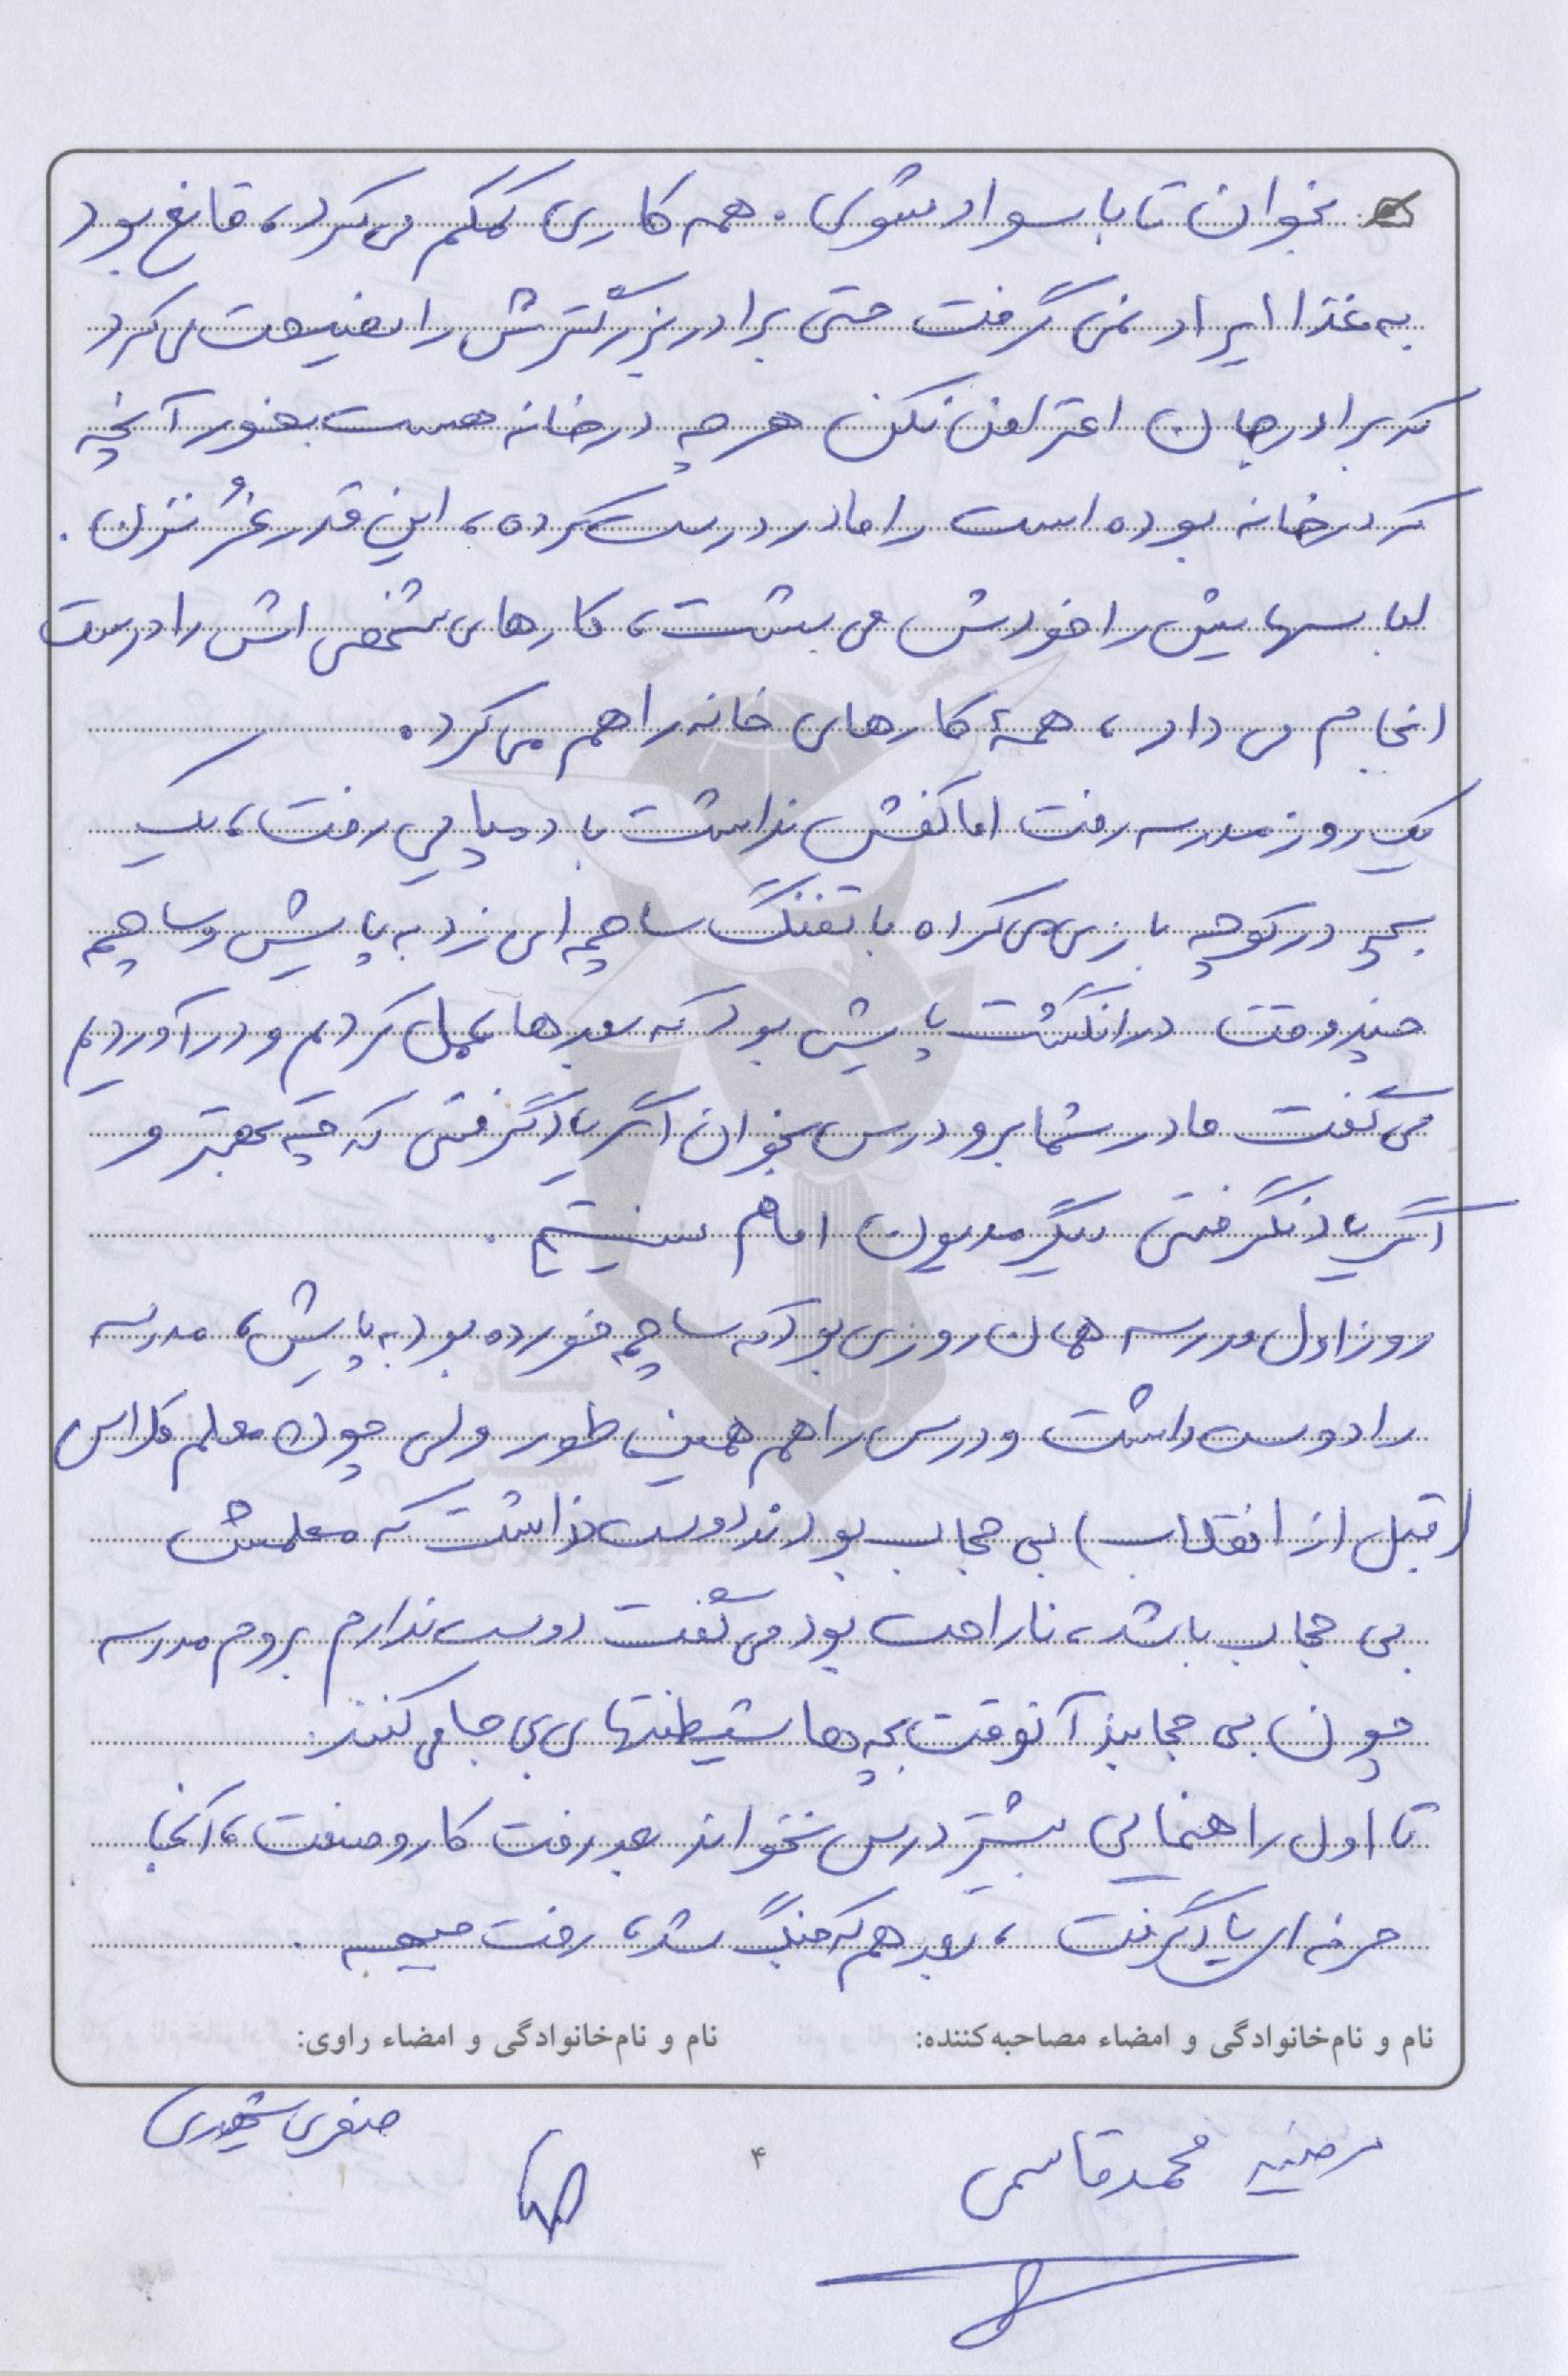 بخوان تا با سواد شوی. همه کاری کمکم می کرد، قانع بود
به غذا ایراد نمی گرفت حتی برادر بزرگترش را نصیحت می کرد
که برادر جان اعتراض نکن هر چه در خانه هست بخور آنچه
که در خانه بوده است را مادر درست کرده، این قدر غُر نزن.
لباسهایش را خودش می شست، کارهای شخصی اش را درست
انجام می داد، همۀ کارهای خانه را هم می کرد.
یک روز مدرسه رفت اما کفش نداشت با دمپایی رفت، یک
بچه در کوچه بازی می کرده با تفنگ ساچمه ای زد به پایش و ساچمه
چند وقت در انگشت پایش بود که بعدها عمل کردم و در آوردیم
می گفت مادر شما برو درس بخوان اگر یاد گرفتی که چه بهتر و
اگر یاد نگرفتی دیگر مدیون امام نیستیم.
روز اول مدرسه همان روزی بود که ساچمه خورده بود به پایش، مدرسه
را دوست داشت و درس را هم همین طور ولی چون معلم کلاس
(قبل از انقلاب) بی حجاب بودند دوست نداشت که معلمش
بی حجاب باشد، ناراحت بود می گفت دوست ندارم بروم مدرسه
چون بی حجابند آنوقت بچه ها شیطنتهای بی جا می کنند.
تا اول راهنمایی بیشتر درس نخواند بعد رفت کار و صنعت، آنجا
حرفه ای یاد گرفت، بعد هم که جنگ شد، رفت جبهه.
نام و نام خانوادگی و امضاء مصاحبه کننده: نام و نام خانوادگی و امضاء راوی:
مرضیه محمدقاسمی ۴